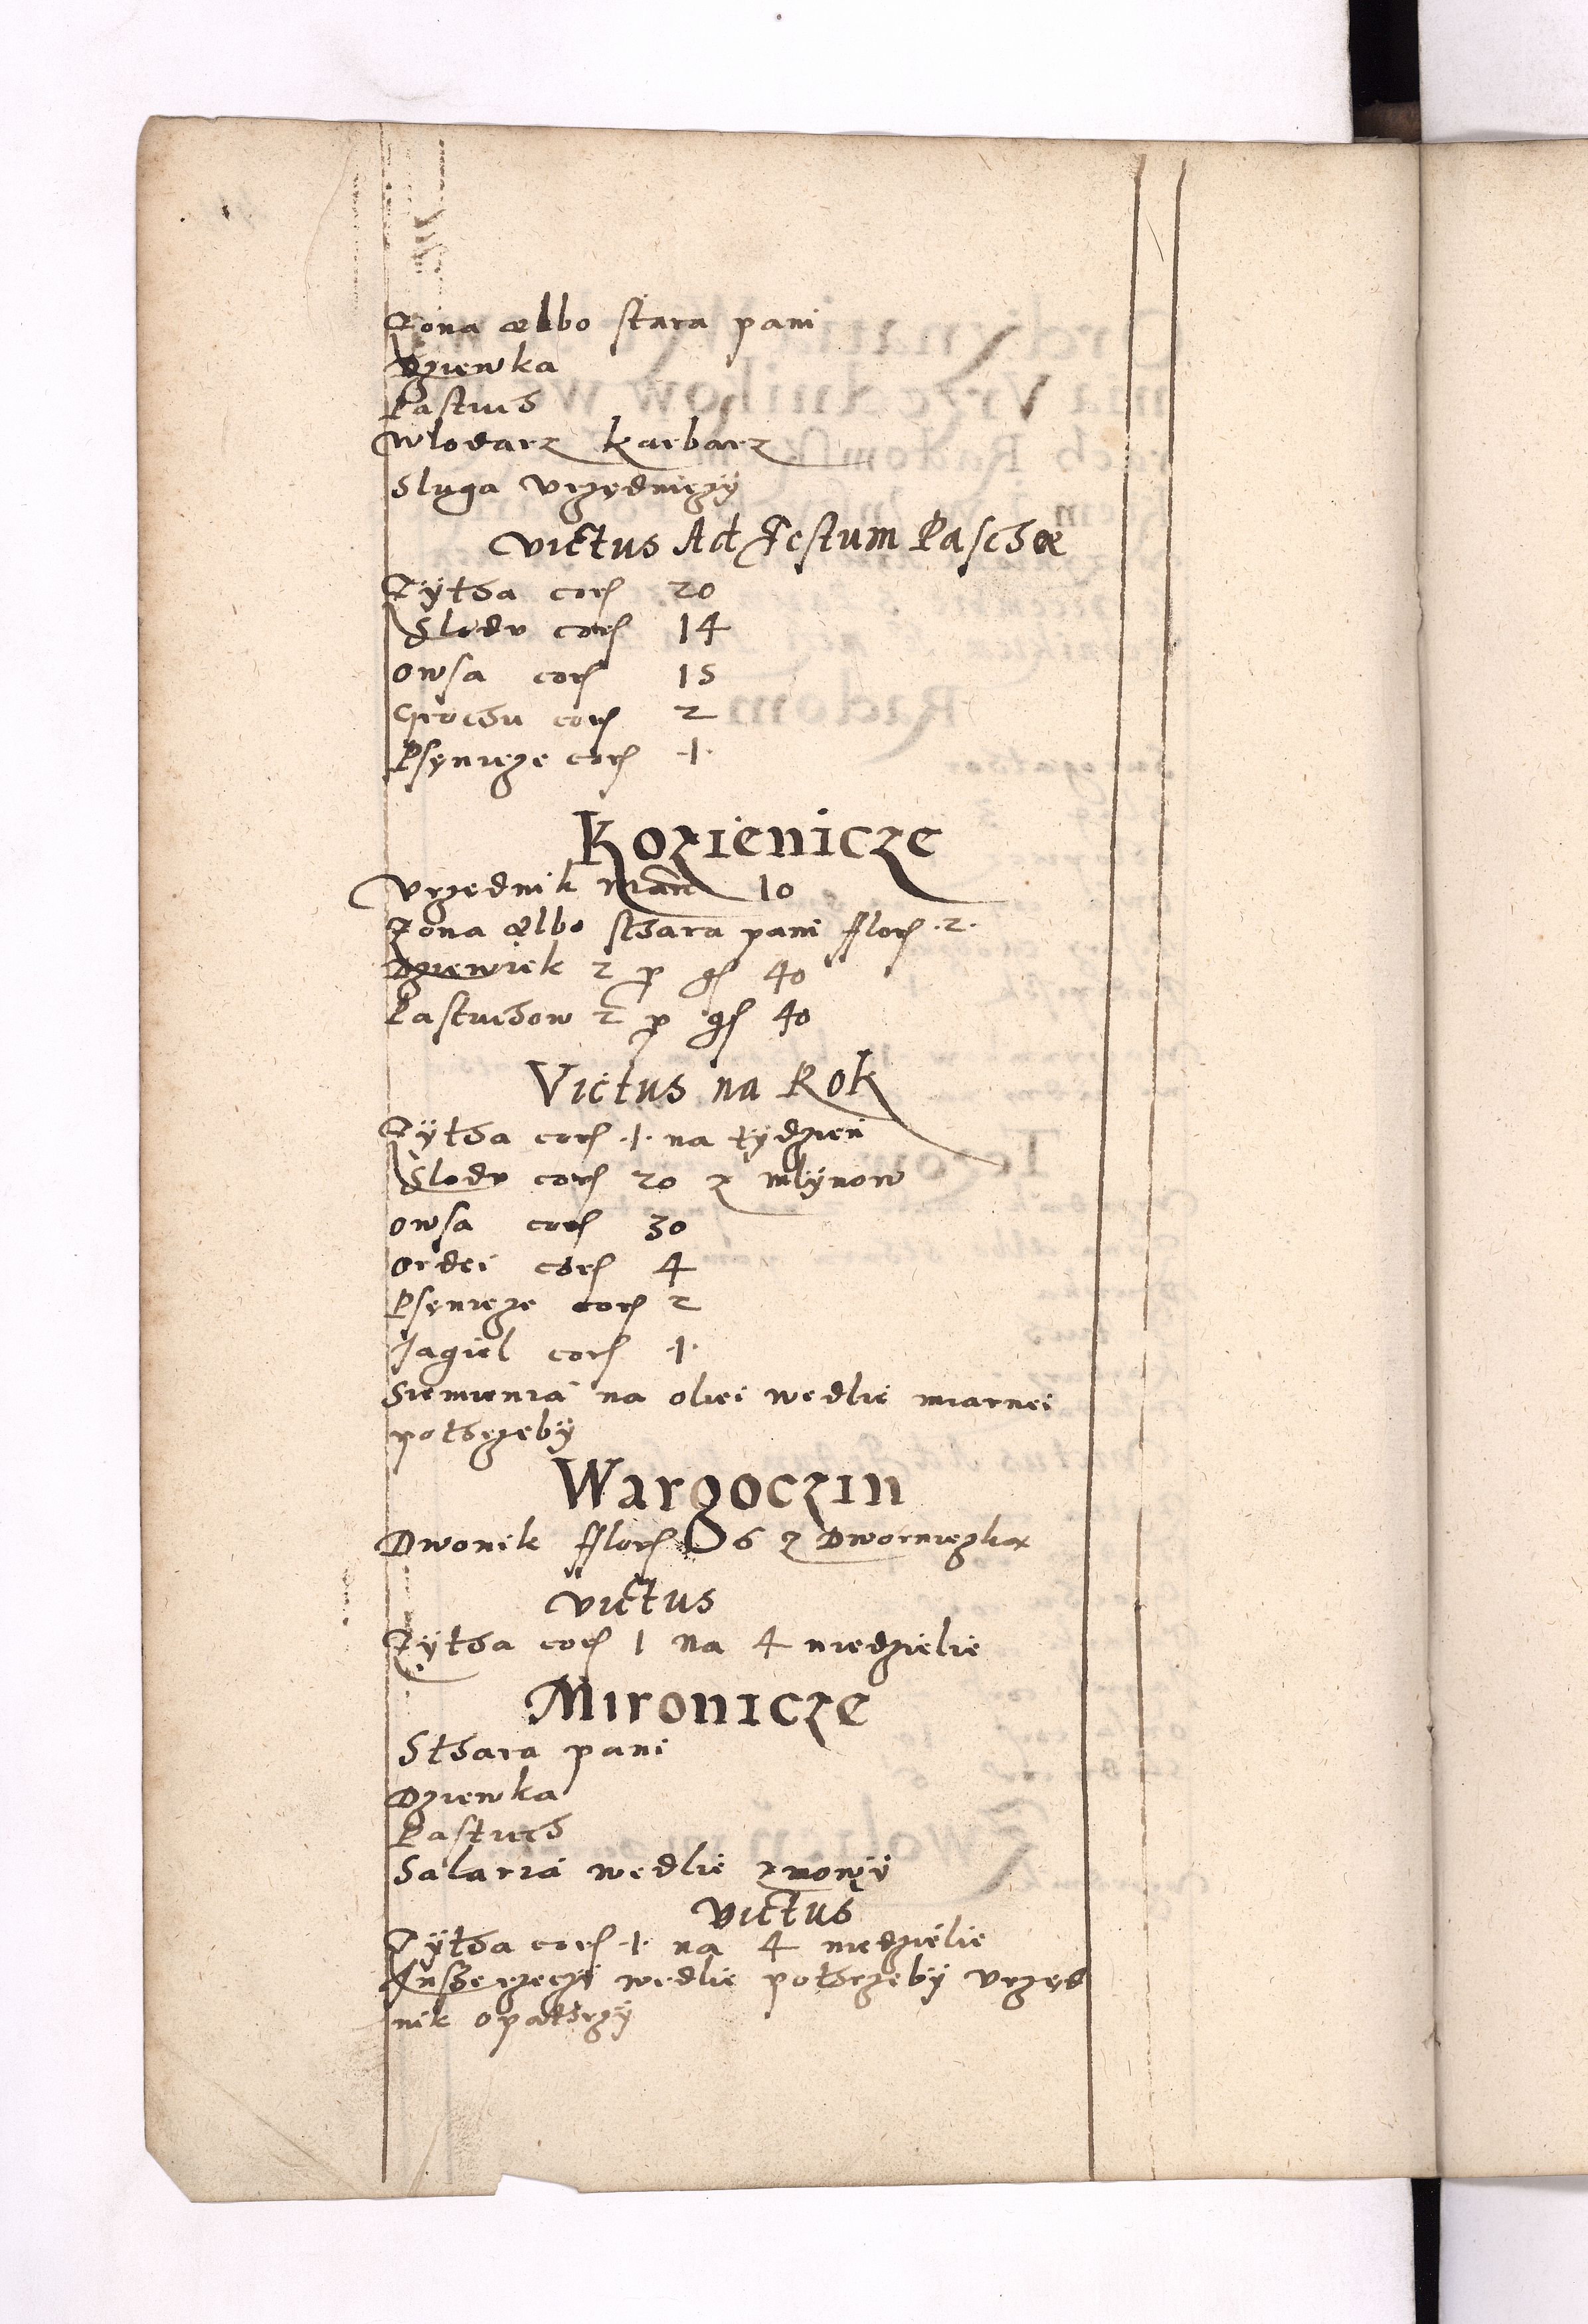 Zona albo stara pani
Dziewka
Pastuch
Wlodarz karbarz
Sluga Vrzędniczÿ
Victus Ad Festum Paschæ
Zÿtha cor 20
Slodu cor 14
Owsa cor 15
Grochu cor 2
Psenicze cor ·1·
Kozienicze
Vrzednik Mar 10
Zona albo sthara pani flor ·2·
Dziewiek 2 p gr 40
Pastuchow 2 p gr 40
Victus na Rok
Zÿtha cor ·1· na tÿdzien
Slodu cor 20 z mlÿnow
Owsa cor 30
Ordei cor 4
Psenicze cor 2
Jagiel cor ·1·
Siemienia na oliei wedlie miarnei
pothrzebÿ
Wargoczin
Dwonik flor 6 z Dworniczka
Victus
Zÿtha cor 1 na 4 niedzielie
Mironicze
Sthara pani
Dziewka
Pastuch
Salaria wedlie zmowÿ
Victus
Zÿtha cor ·1· na 4 niedzielie
Insze rzeczÿ wedlie pothrzebÿ Vrzęd
nik opathrzÿ